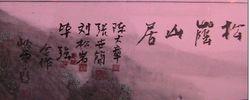 松荫山居
陈大章
张世简
刘松岩
毕强
合作